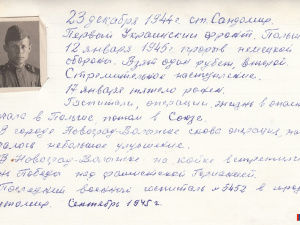 23 декабря 1944г. ст. Сандомир.
Первый Украинский фронт. Польш
12 января 1945г. прорыв немецкой
обороны. Взят один рубеж, второй.
Стремительное наступление.
17 января тяжело ранен.
Госпитали, операции, жизнь в опасн
чала в Польше потом в Союзе.
В городе Новоград-Волынске снова операция, на
далось небольшое улучшение.
В Новоград-Волынске на койке встретил
нь Победы над фашистской Германией.
Последний военный госпиталь №5452 в гор
Житомир. Сентябрь 1945г.